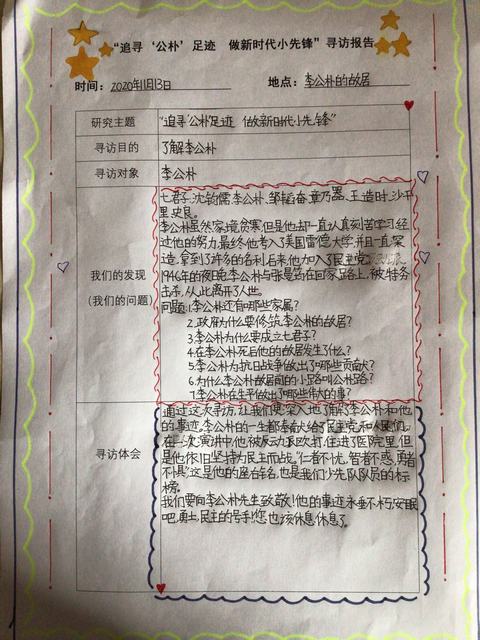 “追寻‘公朴’足迹　做新时代小先锋”寻访报告
时间：2020年11月13日　地点：李公朴的故居
研究主题　“追寻‘公朴’足迹　做新时代小先锋”
寻访目的　了解李公朴
寻访对象　李公朴
我们的发现
（我们的问题）
七君子:沈钧儒、李公朴、邹韬奋、章乃器、王造时、沙千
里、史良。
李公朴虽然家境贫寒但是他却一直认真刻苦学习经
过他的努力,最终他考入了美国雷德大学并且一直深
造,拿到了许多的名利,后来,他加入了民主党
1946年的夜晚李公朴与张曼筠在回家路上,被特务
击杀,从此离开了人世。
问题:1.李公朴还有哪些家属?
2.政府为什么要修筑李公朴的故居?
3.李公朴为什么要成立七君子?
4.在李公朴死后他的故居发生了什么?
5.李公朴为抗日战争做出了哪些贡献?
6.为什么李公朴故居前的小路叫公朴路?
7.李公朴在生平做出了哪些伟大的事?
寻访体会
通过这次寻访,让我们更深入地了解了李公朴和他
的事迹,李公朴的一生都奉献给了民主党和人民们,
在一次演讲中,他被反动派殴打,住进了医院里,但
是他依旧坚持为民主而战。“仁者不忧,智者不惑,勇者
不惧”这是他的座右铭,也是我们少先队队员的标
榜。
我们要向李公朴先生致敬!他的事迹永垂不朽,安眠
吧,勇士,民主的号手!您也该休息休息了。